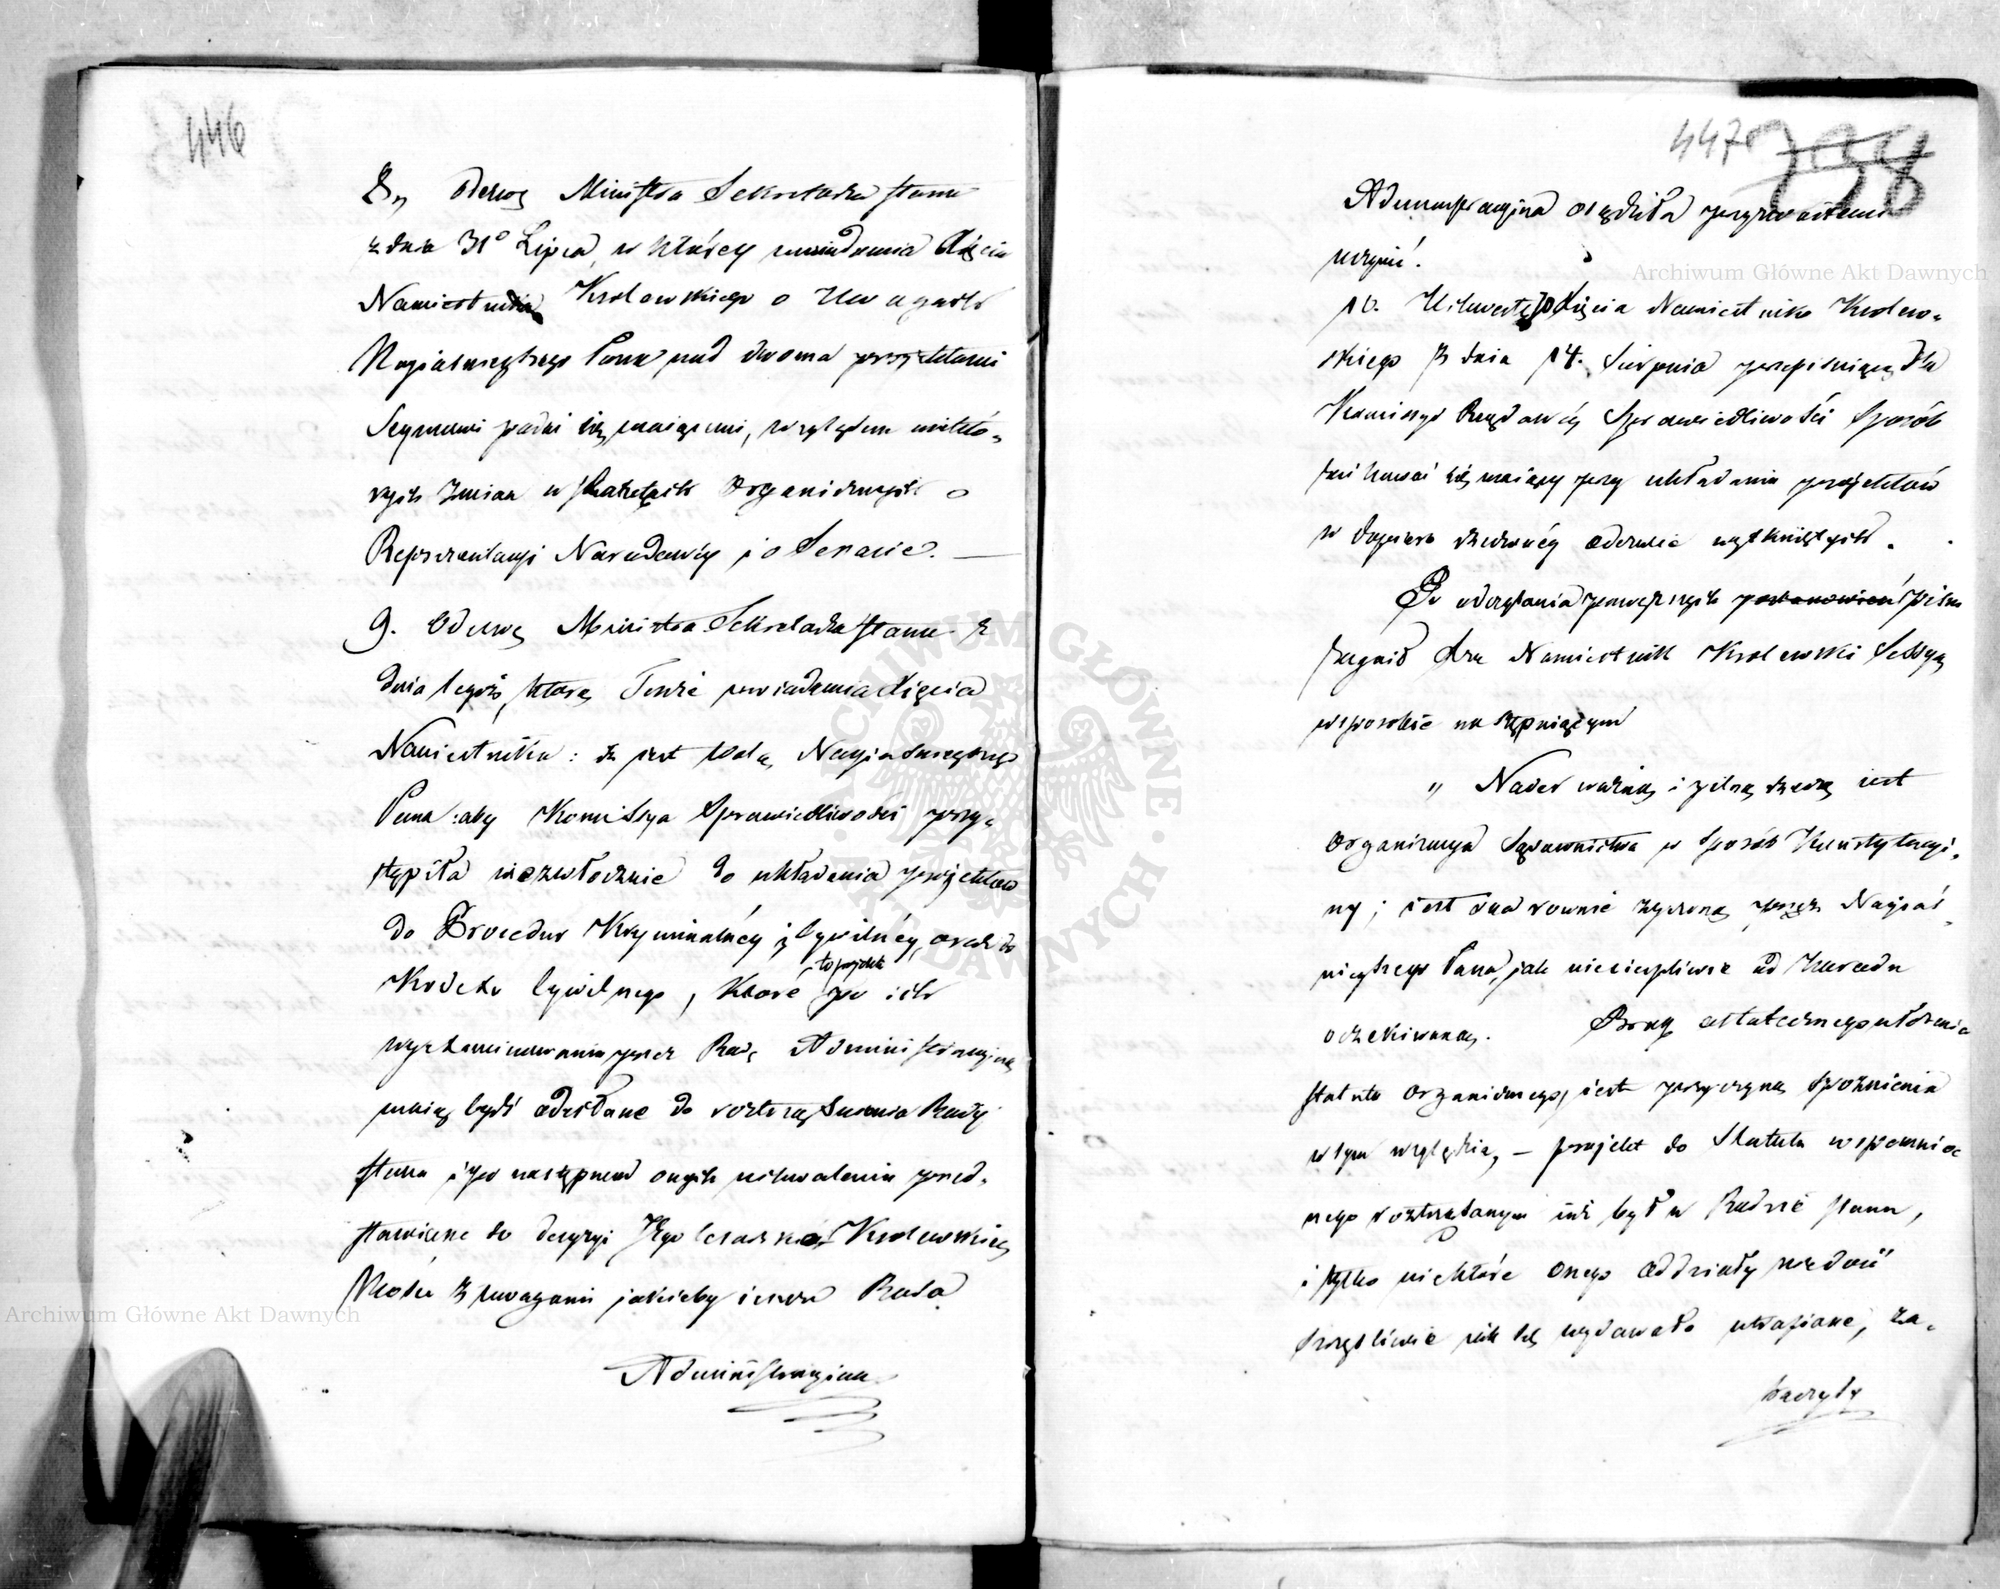 446
8, Odezwę Ministra Sekretarza Stanu
z dnia 31º Lipca, w którey uwiadamia Xięcia
Namiestnika Krolewskiego o Uwagach
Nayiasnieyszego Pana nad dwoma projektami
Seymowi podać się maiącemi, względem niektó-
rych zmian w Statutach Organicznych o
Reprezentacyi Narodowéy i o Senacie. —
9. Odezwę Ministra Sekretarza Stanu z
dnia tegoż, którą Tenże uwiadamia Xięcia
Namiestnika: że jest wolą Nayiasnieyszego
Pana: aby Komissya Sprawiedliwości przy-
stąpiła niezwłocznie do układania projektow
do Procedur Kryminalnéy i Cywilnéy, oraz do
Kodexu Cywilnego, ktore to projekta po ich
wyexaminowaniu przez Radę Administracyiną
maią bydź odesłane do roztrząśnienia Rady
Stanu i po następném onych uchwaleniu przed-
stawione do decyzyi Jego Cesarsko Krolewskiey
Mości z uwagami jakieby ieszcze Rada
Administracyina
447
738
Administracyina osądziła przyzwoitemi
uczynić.
10. Uchwałę Xięcia Namiestnika Krolew-
skiego z dnia 14. Sierpnia przepisuiącą dla
Kommissyi Rządowéy Sprawiedliwości sposób
zachować się maiący przy układaniu projektów
w dopiero rzeczonéy odezwie wytkniętych.
Po odczytaniu powyższych postanowień i pism
zagaił Xże Namiestnik Krolewski Sessyą
w sposobie następuiącym
„ Nader ważną i pilną rzeczą iest
Organizacya Sądownictwa w sposób Konstytucyi-
ny; iest ona rownie życzoną przez Nayiaś-
nieyszego Pana, jak niecierpliwie od Narodu
oczekiwaną. Brak ostatecznego ułożenia
Statutu organicznego, iest przyczyną spoźnienia
w tym względzie, – projekt do Statutu wspomnio
nego roztrząsanym iuż był w Radzie Stanu,
i tylko niektóre onego oddziały niedość
szczęśliwie jak się wydawało ukazane, za-